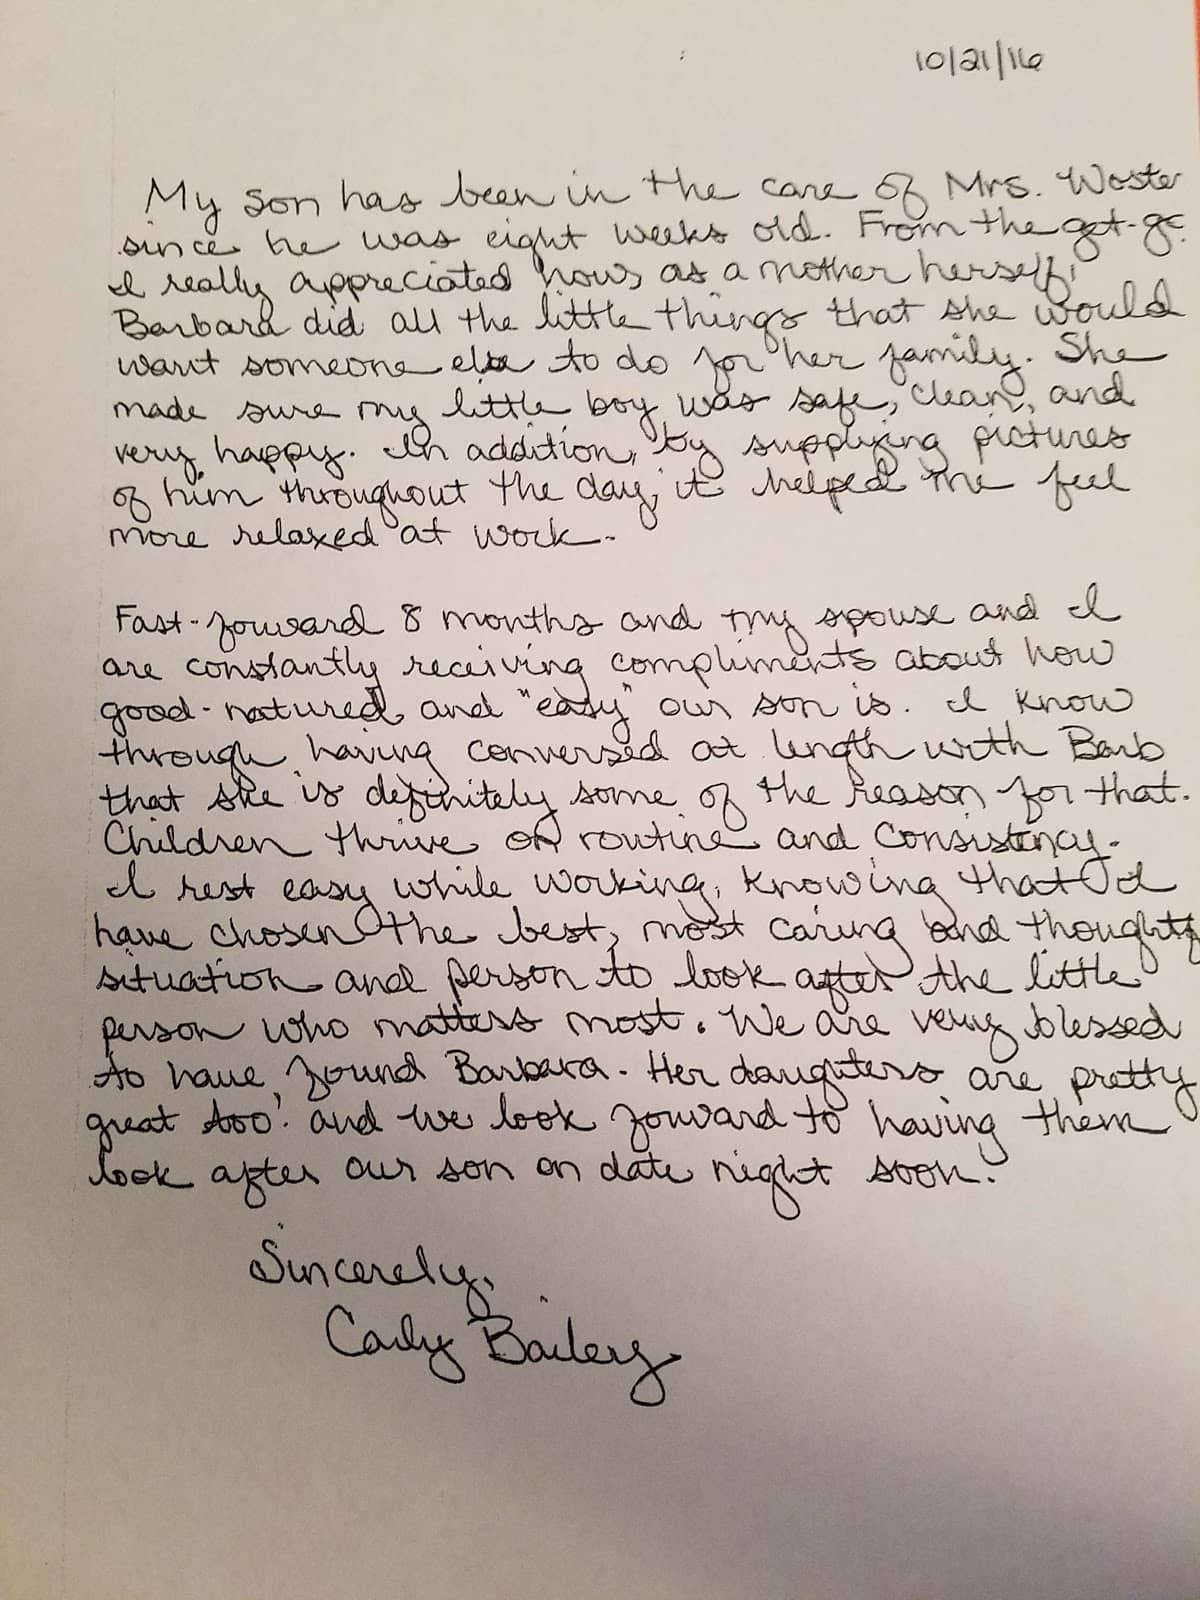 10/21/16
My son has been in the care of Mrs. Woster
since he was eight weeks old. From the get-go
I really appreciated how, as a mother herself,
Barbara did all the little things that she would
want someone else to do for her family. She
made sure my little boy was safe, clean, and
very happy. In addition, by supplying pictures
of him throughout the day, it helped me feel
more relaxed at work.
Fast-forward 8 months and my spouse and I
are constantly receiving compliments about how
good-natured and "easy" our son is. I know
through having conversed at length with Barb
that she is definitely some of the reason for that.
Children thrive on routine and consistency.
I rest easy while working, knowing that I
have chosen the best, most caring and
situation and person to look after the little
person who matters most. We are very blessed
to have found Barbara. Her daughters are pretty
great too! and we look forward to having them
look after our son on date night soon.
Sincerely,
Carly Bailey